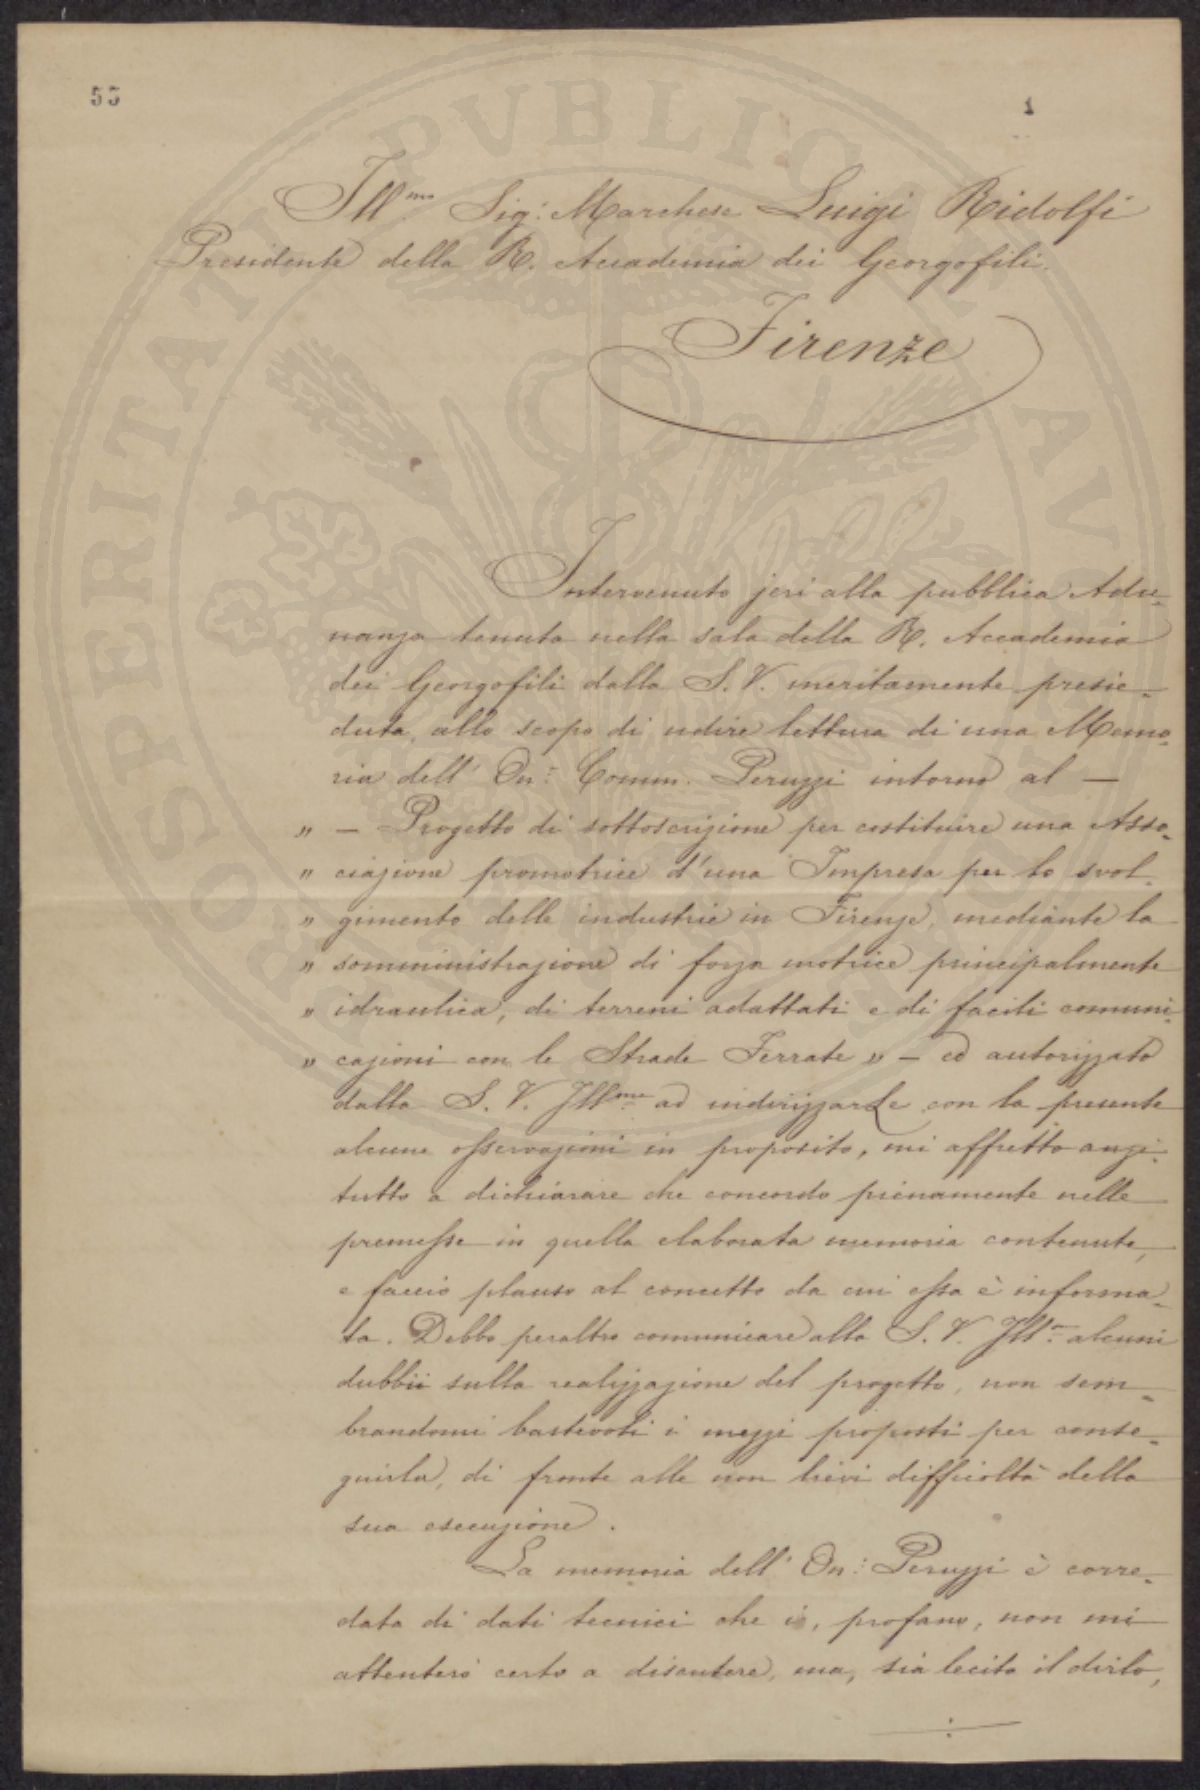 53
1
Ill.mo Sig.r Marchese Luigi Ridolfi
Presidente della R. Accademia dei Georgofili.
Firenze
Intervenuto jeri alla pubblica Adu-
nanza tenuta nella sala della R. Accademia
dei Georgofili dalla S. V. meritamente presie-
duta, allo scopo di udire lettura di una Memo-
ria dell' On: Comm. Peruzzi intorno al —
" — Progetto di sottoscrizione per costituire una Asso-
" ciazione promotrice d'una Impresa per lo svol-
" gimento delle industrie in Firenze, mediante la
" somministrazione di forza motrice principalmente
" idraulica, di terreni adattati e di facili comuni-
" cazioni con le Strade Ferrate " — ed autorizzato
dalla S. V. Ill.ma ad indirizzarLe con la presente
alcune osservazioni in proposito, mi affretto anzi-
tutto a dichiarare che concordo pienamente nelle
premesse in quella elaborata memoria contenute,
e faccio plauso al concetto da cui essa è informa-
ta. Debbo peraltro comunicare alla S. V. Ill.ma alcuni
dubbii sulla realizzazione del progetto, non sem-
brandomi bastevoli i mezzi proposti per conse-
guirla, di fronte alle non lievi difficoltà della
sua esecuzione.
La memoria dell' On: Peruzzi è corre-
data di dati tecnici che io, profano, non mi
attenterò certo a discutere, ma, sia lecito il dirlo,
PVBLIC
AV
PROSPERITATI